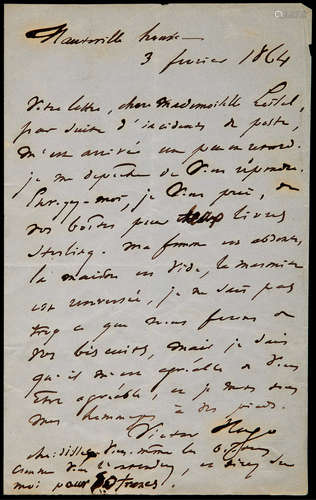 Hauteville house
3 février 1864
Votre lettre, chère Mademoiselle
par suite d'incidents de poste,
m'est arrivée un peu en retard.
je me dépêche de vous répondre.
Envoyez-moi, je vous prie, de
vos boîtes pour livres
Sterling. Ma femme est absente,
la maison est vide, la marmite
est renversée, je ne sais pas
trop ce que nous ferons de
vos biscuits, mais je sais
qu'il m'est agréable de vous
être agréable, et je mets tous
mes hommages à vos pieds.
Victor Hugo
vous-même les
comme vous l'entendrez, et
moi pour 50 francs.